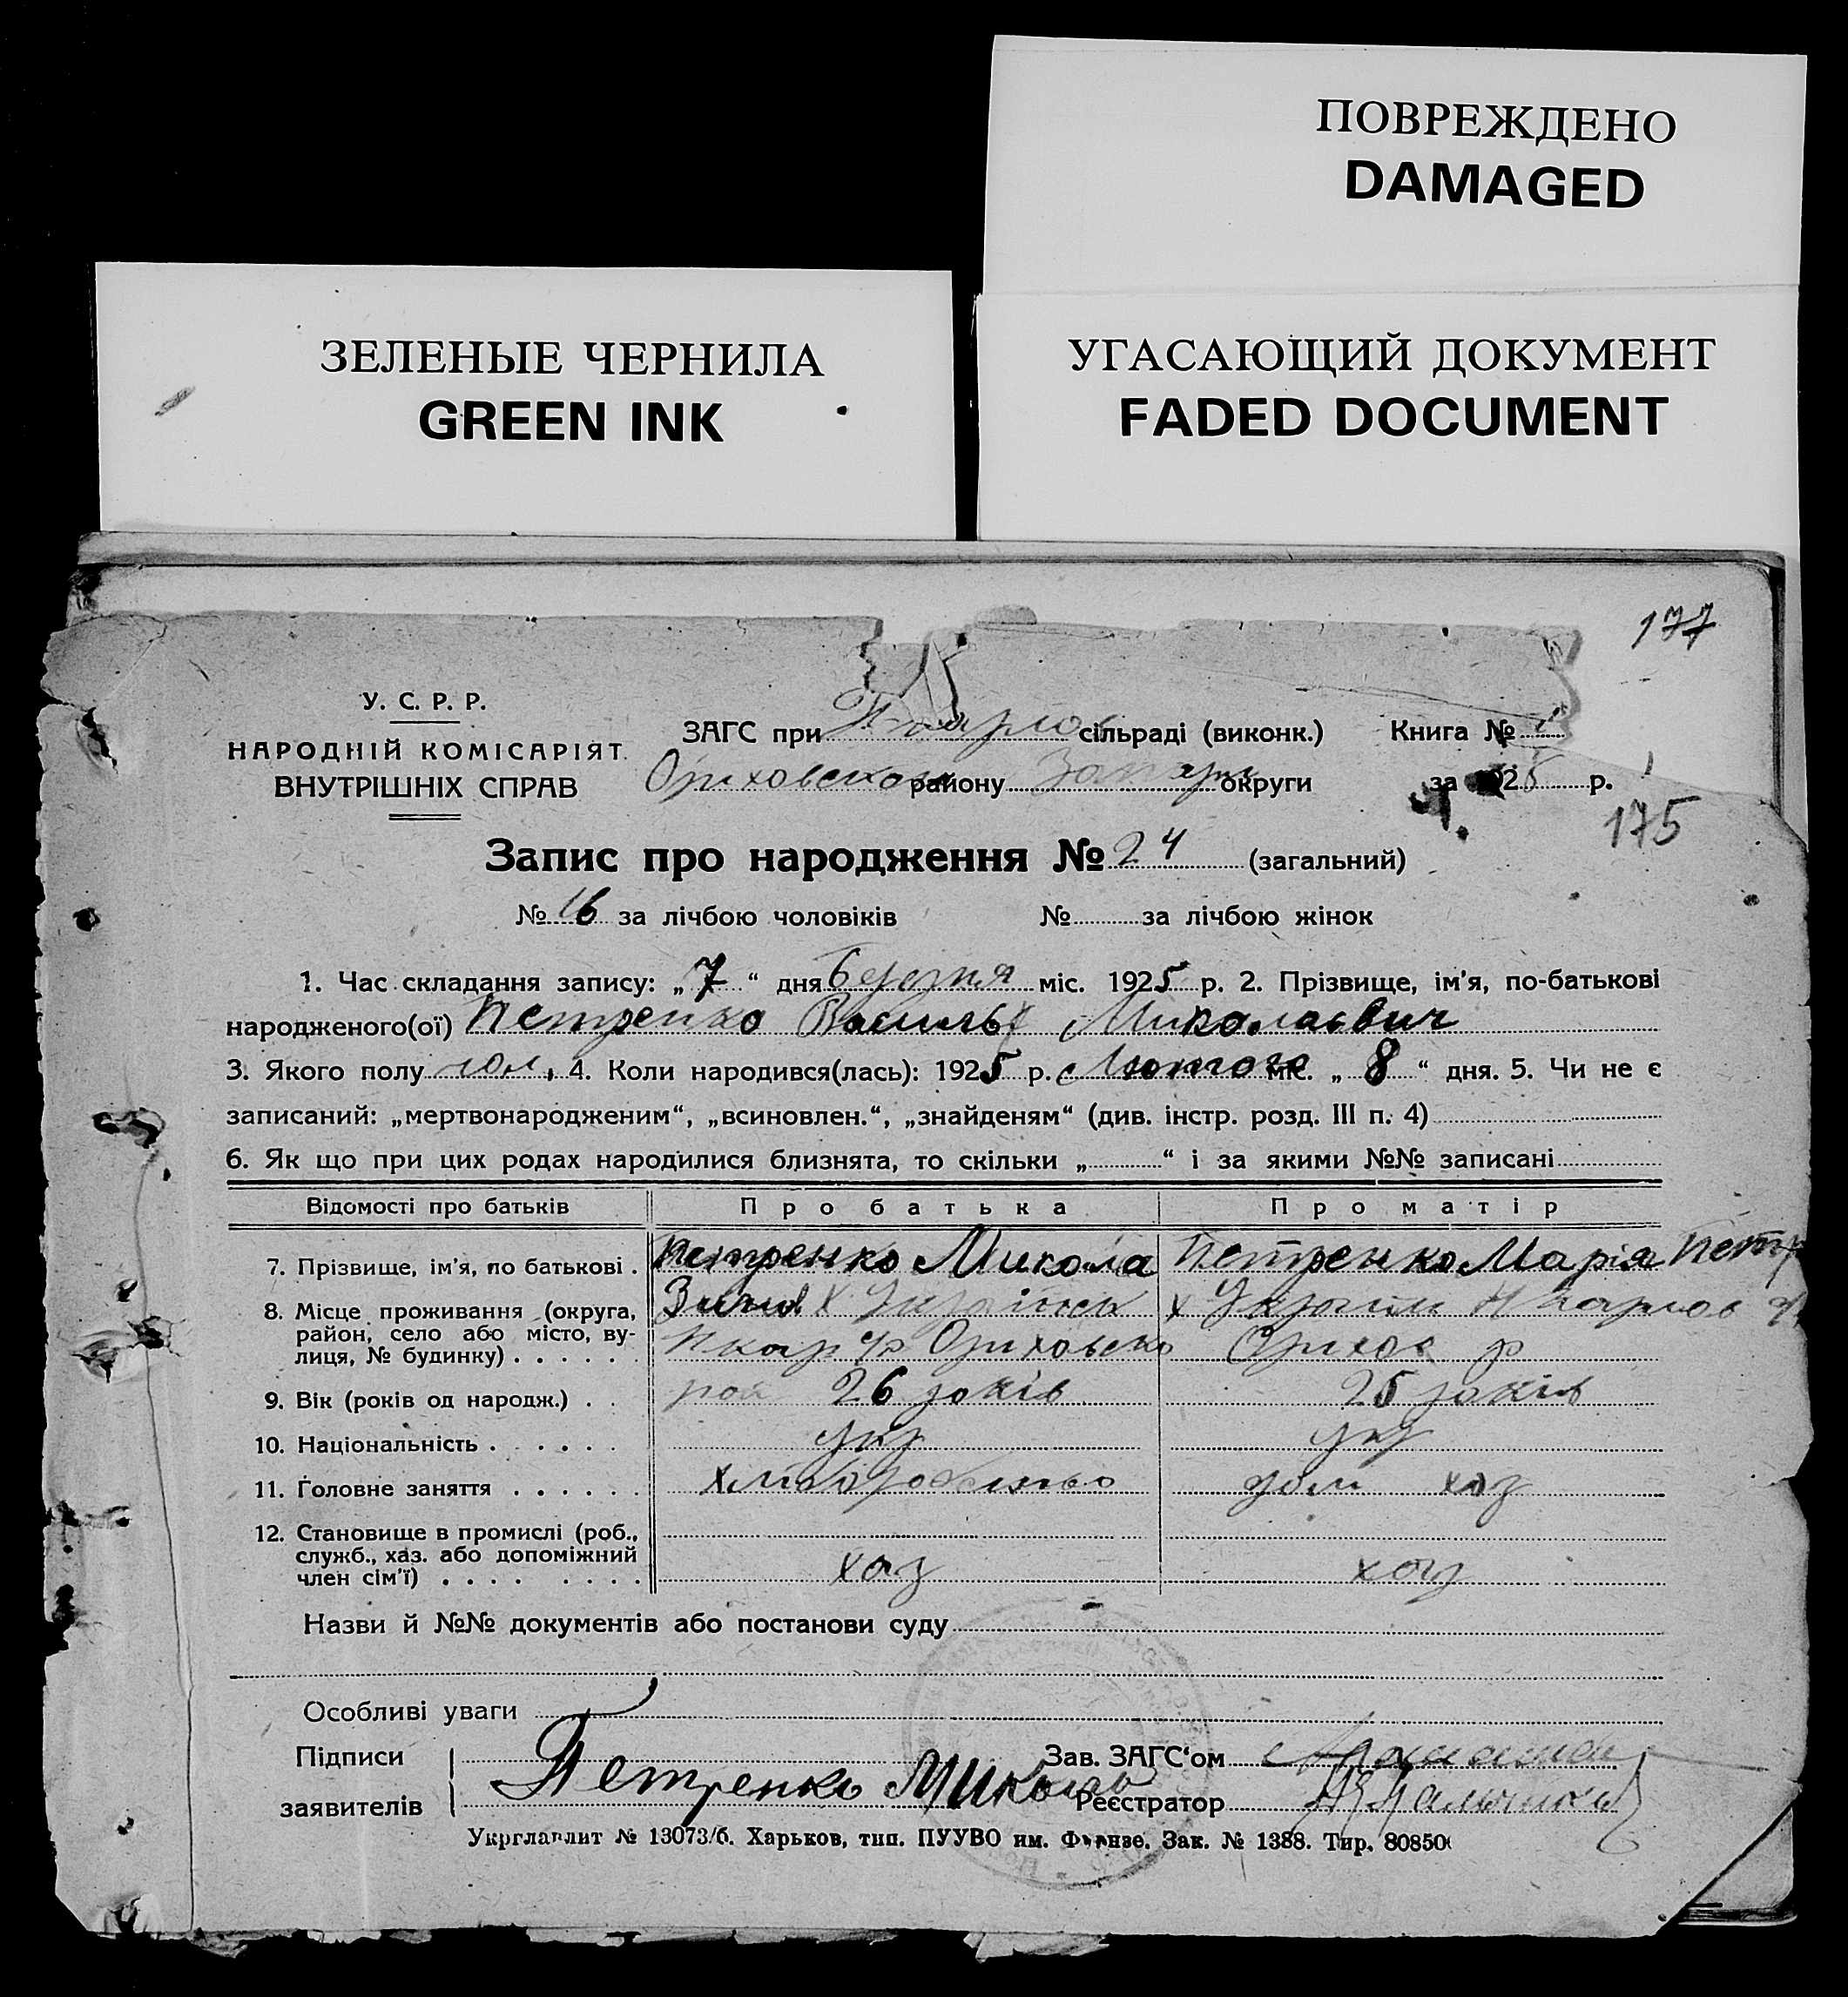 ПОВРЕЖДЕНО
DAMAGED
ЗЕЛЕНЫЕ ЧЕРНИЛА
GREEN INK
УГАСАЮЩИЙ ДОКУМЕНТ
FADED DOCUMENT
177
У. С. Р. Р.
НАРОДНІЙ КОМІСАРІЯТ
ВНУТРІШНІХ СПРАВ
ЗАГС при сільраді (виконк.) Книга №
Оріховского району округи за 1925 р.
175
Запис про народження № 24 (загальний)
№ 16 за лічбою чоловіків № за лічбою жінок
1. Час складання запису: „ 7 “ дня березня міс. 1925 р. 2. Прізвище, ім'я, по-батькові
народженого(ої) Петренко Василь Миколаєвич
3. Якого полу 4. Коли народився(лась): 1925 р. Лютого міс. „ 8 “ дня. 5. Чи не є
записаний: „мертвонародженим“, „всиновлен.“, „знайденям“ (див. інстр. розд. III п. 4)
6. Як що при цих родах народилися близнята, то скільки „ “ і за якими №№ записані
Відомості про батьків Про батька Про матір
7. Прізвище, ім'я, по батькові . Петренко Микола Петренко Марія Петр
8. Місце проживання (округа,
район, село або місто, ву-
лиця, № будинку) . . . . . . Оріховско Оріхов р
9. Вік (років од народж.) . . 26 років 25 років
10. Національність . . . . . . укр укр
11. Головне заняття . . . . . . хліборобство дом хаз
12. Становище в промислі (роб.,
служб., хаз. або допоміжний
член сім'ї) . . . . . . . . хаз хаз
Назви й №№ документів або постанови суду
Особливі уваги
Підписи Зав. ЗАГС‘ом
заявителів Петренко Микола Реєстратор
Укрглавлит № 13073/б. Харьков, тип. ПУУВО им. Фрунзе. Зак. № 1388. Тир. 80850